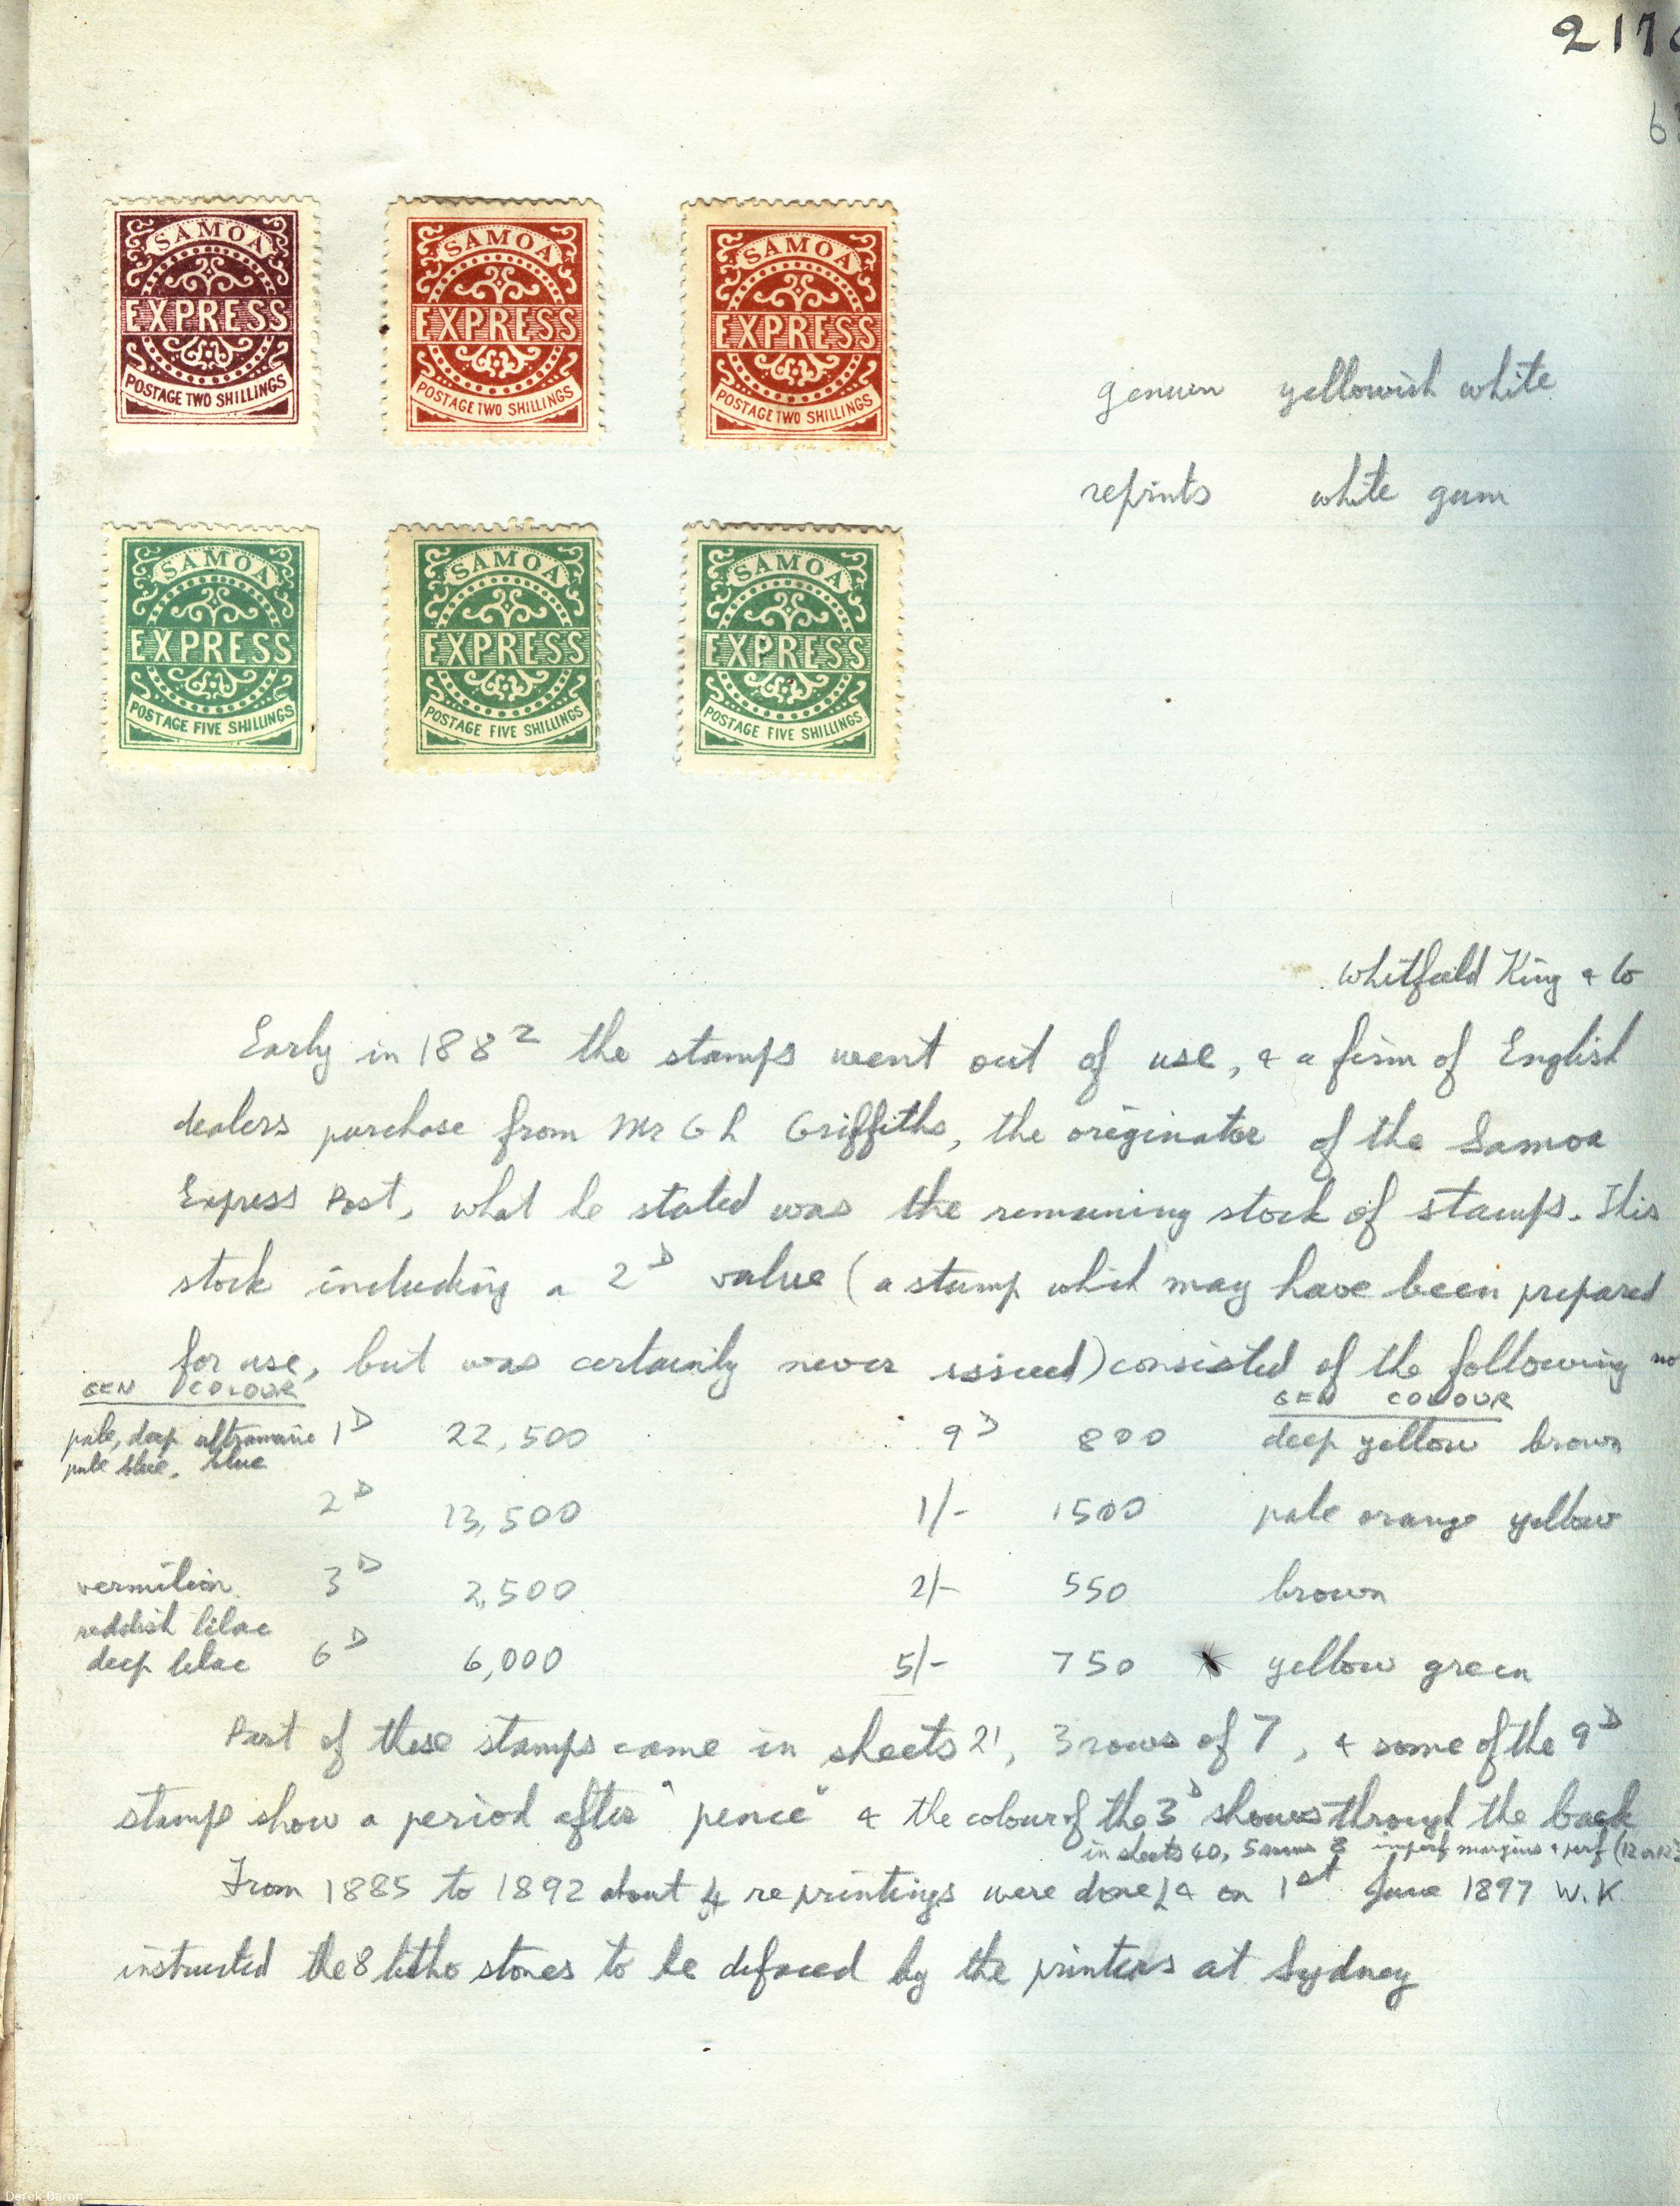 217
6
SAMOA
EXPRESS
POSTAGE TWO SHILLINGS
SAMOA
EXPRESS
POSTAGE TWO SHILLINGS
SAMOA
EXPRESS
POSTAGE TWO SHILLINGS
genuin yellowish white
reprints white gum
SAMOA
EXPRESS
POSTAGE FIVE SHILLINGS
SAMOA
EXPRESS
POSTAGE FIVE SHILLINGS
SAMOA
EXPRESS
POSTAGE FIVE SHILLINGS
Whitfield King & Co
Early in 1882 the stamps went out of use, & a firm of English
dealers purchase from Mr G L Griffiths, the originator of the Samoa
Express Post, what he stated was the remaining stock of stamps. This
stock including a 2D value (a stamp which may have been prepared
for use, but was certainly never issued) consisted of the following no
GEN COLOUR
GEN COLOUR
pale, deep ultramarine 1D 22,500 9D 800 deep yellow brown
pale blue, blue
2D 13,500 1/- 1500 pale orange yellow
vermilion 3D 2,500 2/- 550 brown
reddish lilac
deep lilac 6D 6,000 5/- 750 yellow green
Part of these stamps came in sheets 21, 3 rows of 7, & some of the 9D
stamp show a period after "pence" & the colour of the 3D shows through the back
in sheets 40, 5 rows 8 imperf margins & perf (12 or 12
From 1885 to 1892 about 4 reprintings were done, & on 1st June 1897 W.K.
instructed the 8 litho stones to be defaced by the printers at Sydney
Derek Baron